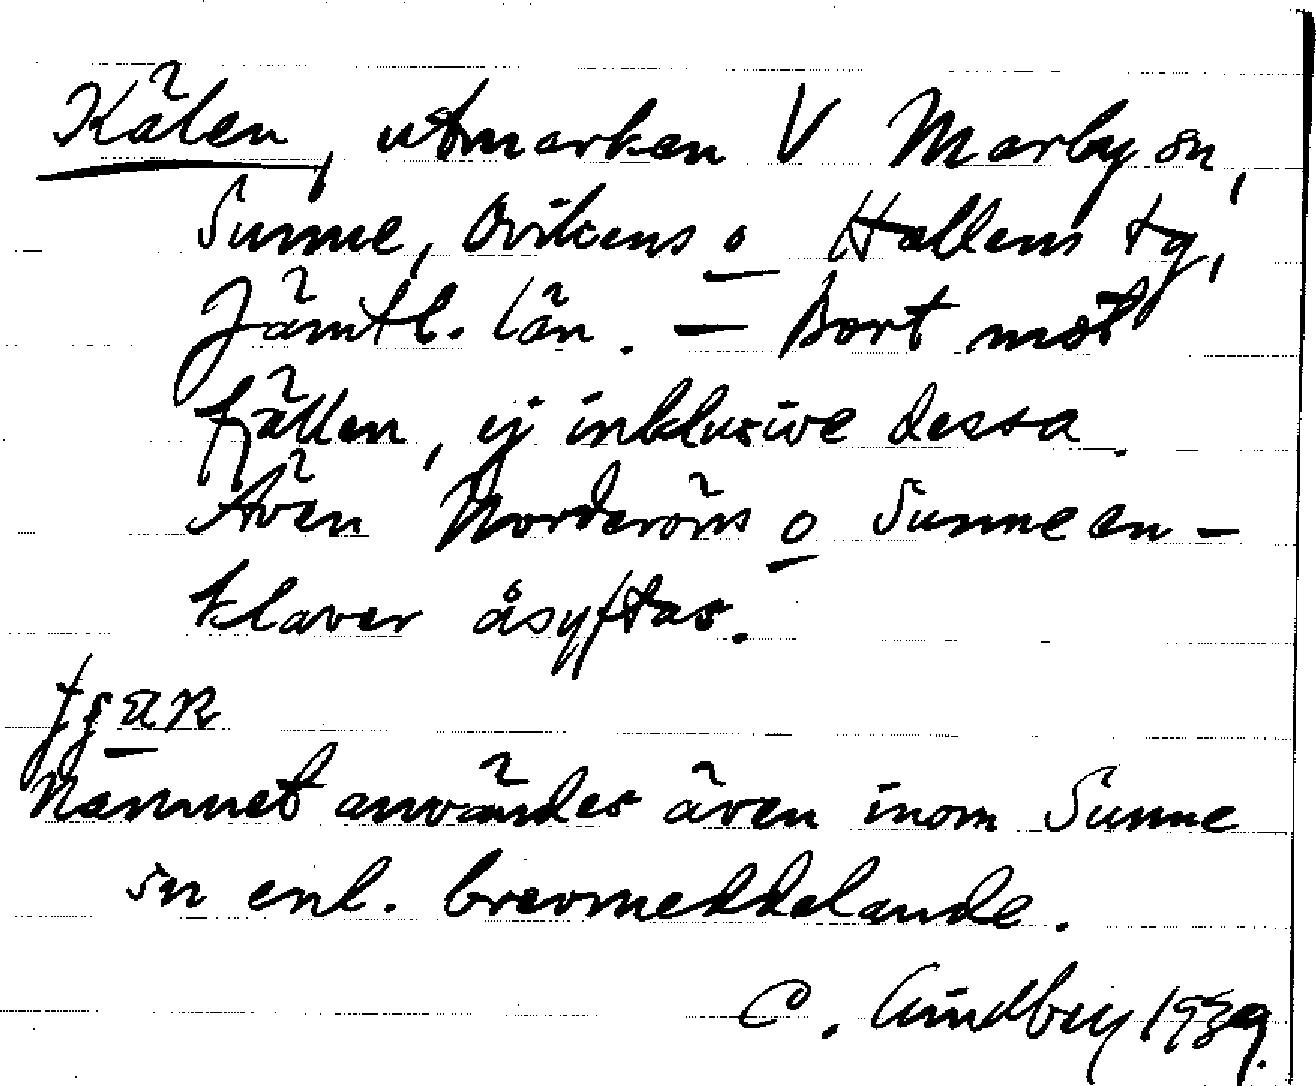 Kälen, utmarken V Marby sn,
Sunne, Ovikens o Hallens tg,
Jämtl. län. — Bort mot
fjällen, ej inklusive dessa.
Även Norderöns o Sunne en-
klaver åsyftas.
Namnet användes även inom Sunne
sn enl. brevmeddelande.
C. Lindberg 1939.